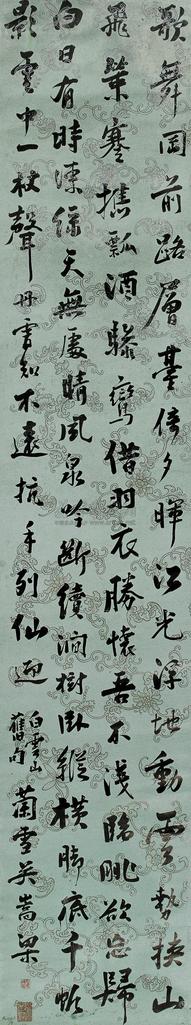 歌舞岡前路層臺倚夕暉江光浮地動雲勢挾山
飛策蹇携瓢酒驂鸞借羽衣勝懷吾不淺臨眺欲忘歸
白日有時涼綠天無處晴風泉吟斷續澗樹臥縱橫腳底千帆
影雲中一杖聲丹霄知不遠抗手列仙迎
白雲山
舊句
蘭雪吳嵩梁